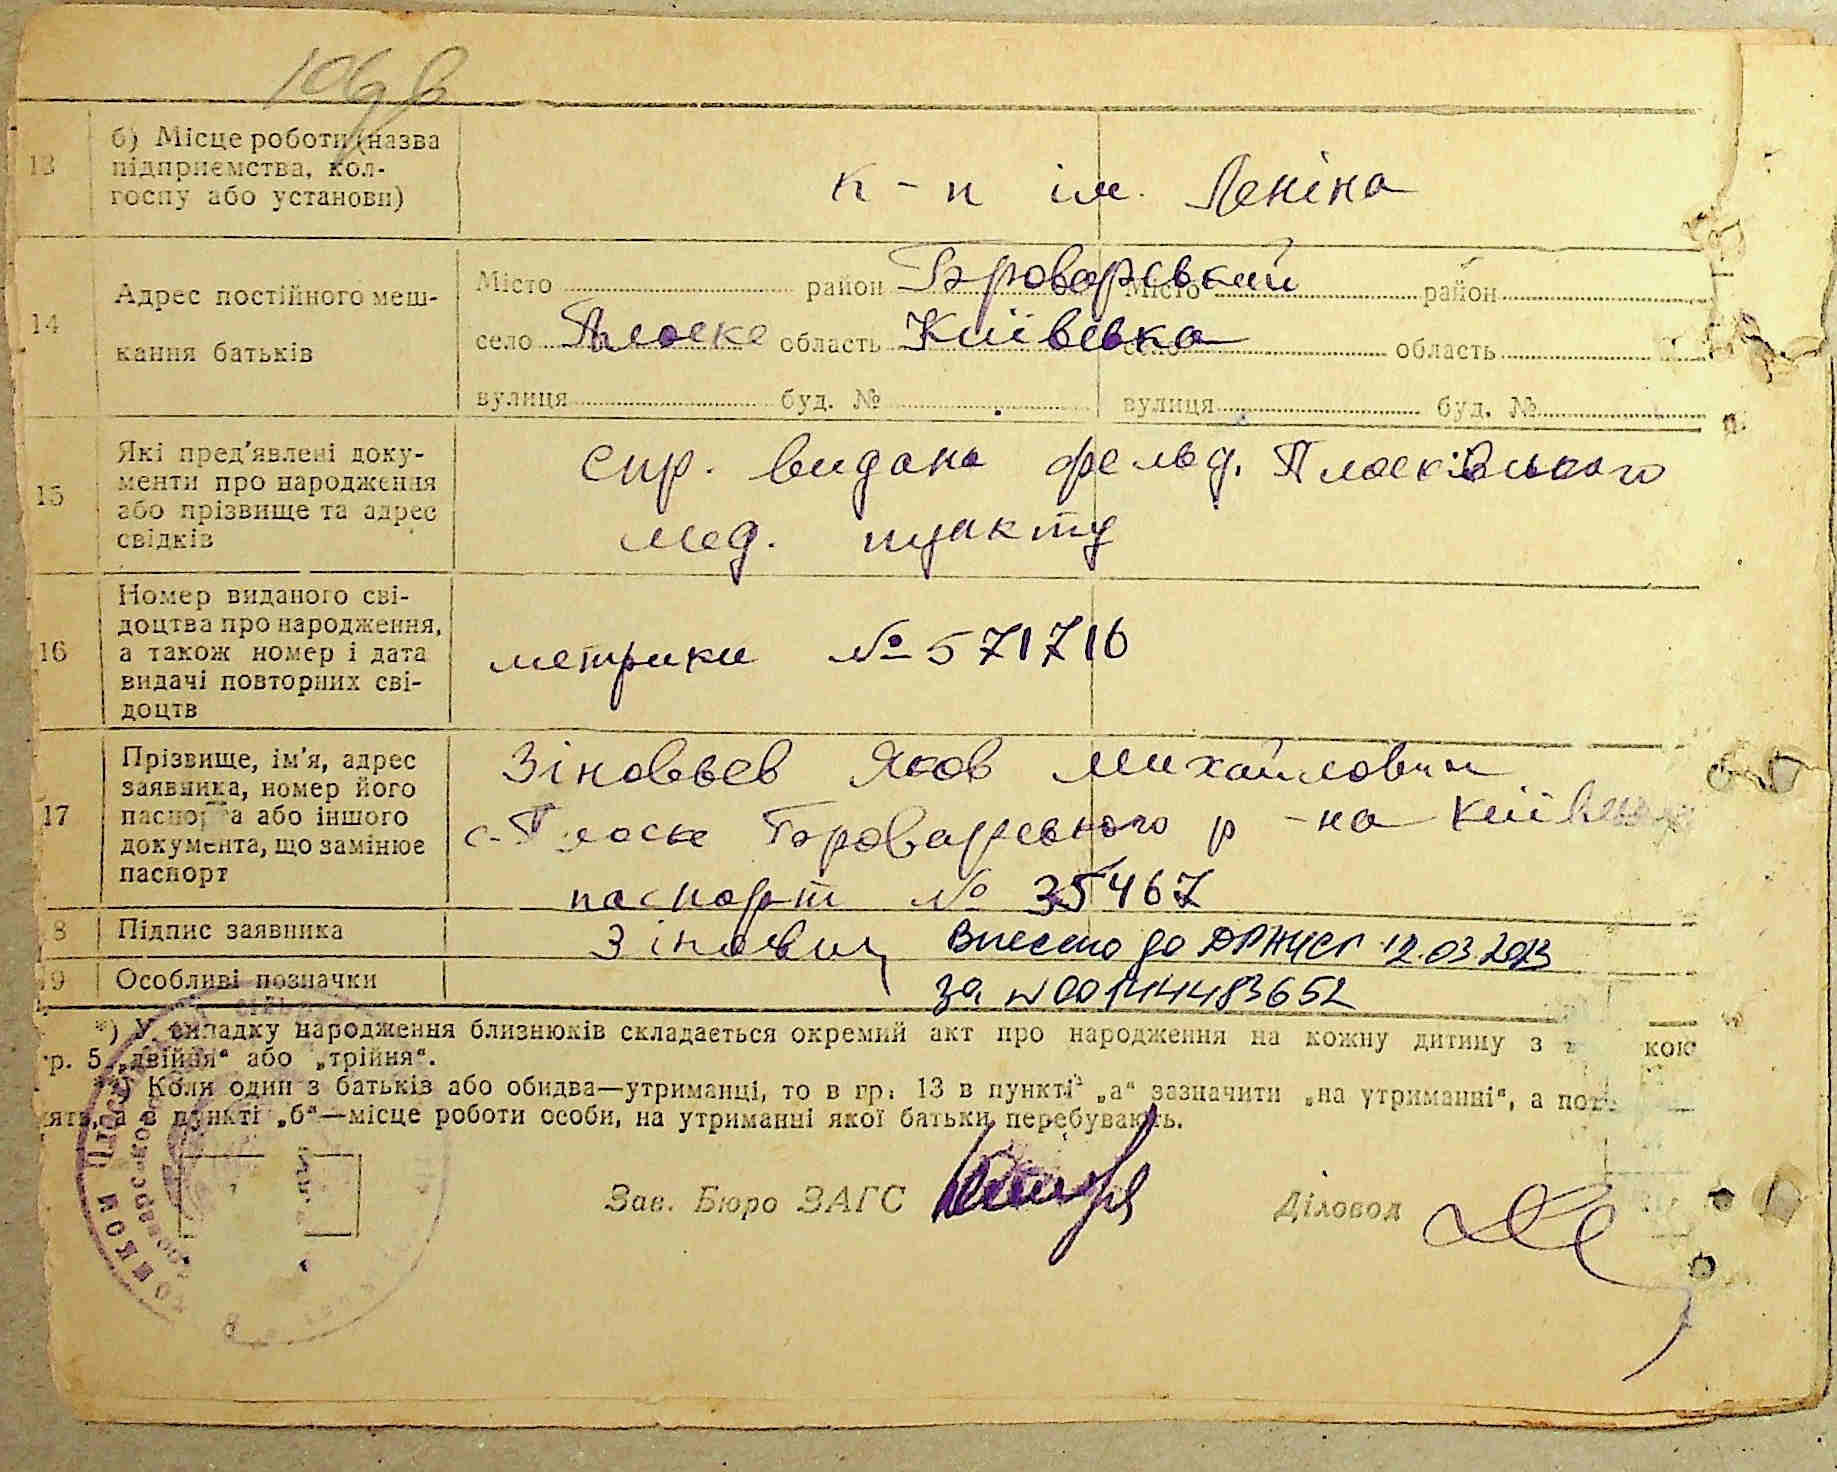 13 б) Місце роботи (назва
підприємства, кол-
госпу або установи)
к-п ім. Леніна
14 Адрес постійного меш-
кання батьків
Місто район Броварський Місто район
село Плоске область Київська область
вулиця буд. № вулиця буд. №
15 Які пред'явлені доку-
менти про народження
або прізвище та адрес
свідків
спр. видана фельд. Плосківського
мед. пункту
16 Номер виданого сві-
доцтва про народження,
а також номер і дата
видачі повторних сві-
доцтв
метрики № 571716
17 Прізвище, ім'я, адрес
заявника, номер його
паспорта або іншого
документа, що замінює
паспорт
Зіновьев Яков Михайлович
с. Плоске Броварського р-на
паспорт № 35467
8 Підпис заявника
Внесено до ДРАЦСГ 12.03.2013
9 Особливі позначки
за №00144483652
*) У випадку народження близнюків складається окремий акт про народження на кожну дитину з кою
гр. 5 „двійня“ або „трійня“.
Коли один з батьків або обидва—утриманці, то в гр. 13 в пункті „а“ зазначити „на утриманні“, а
а в пункті „б“—місце роботи особи, на утриманні якої батьки перебувають.
Зав. Бюро ЗАГС Діловод